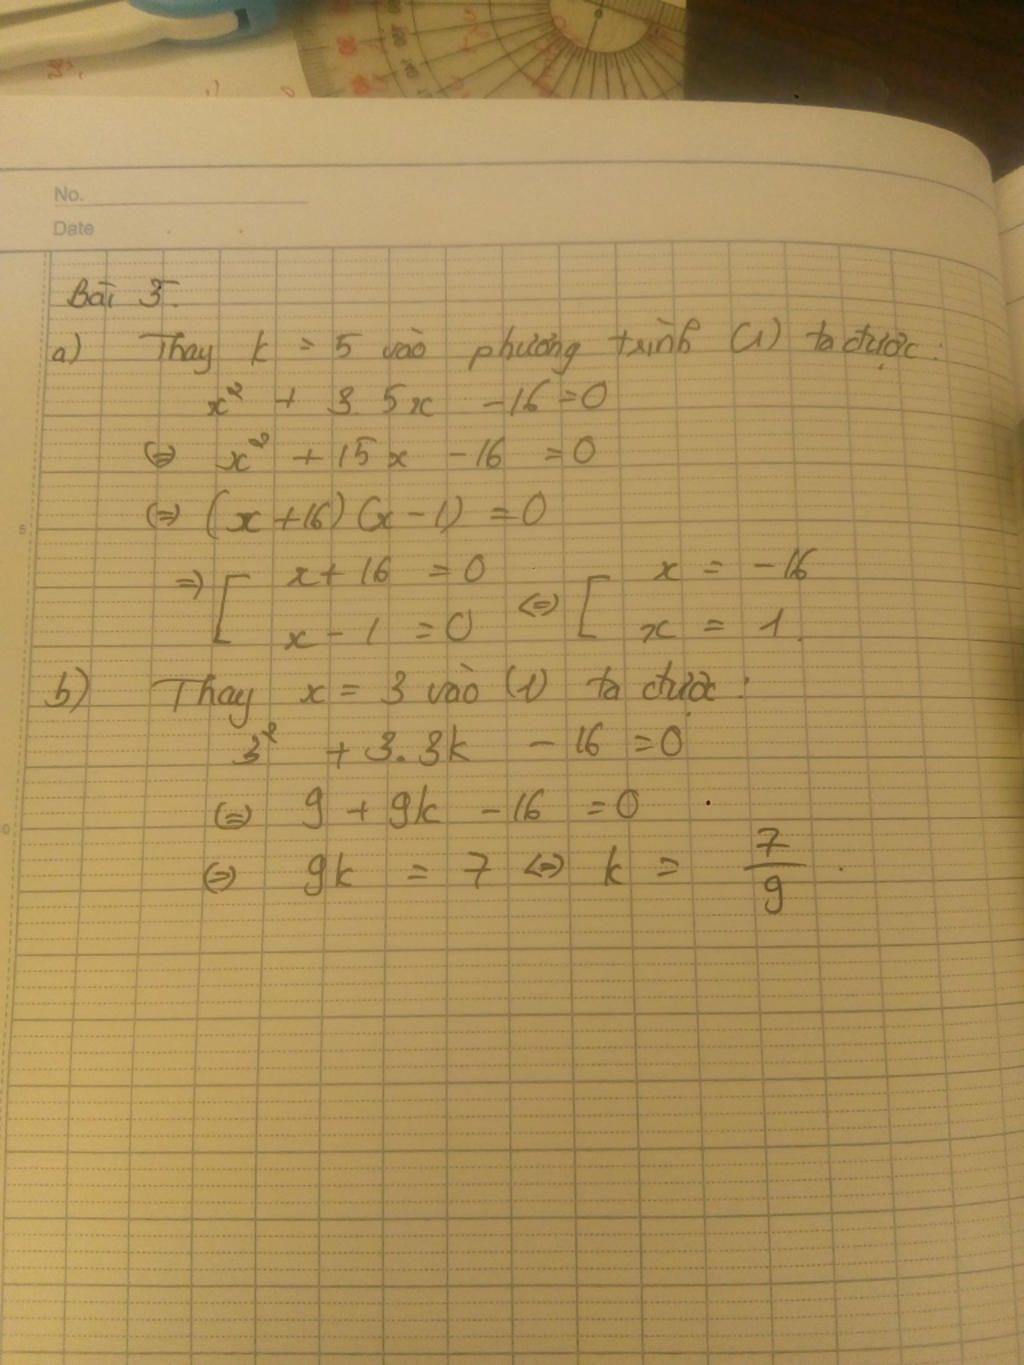 No.
Date
Bài 3.
a) Thay k = 5 vào phương trình (1) ta được:
x² + 3.5x - 16 = 0
(=) x² + 15x - 16 = 0
(=) (x + 16) (x - 1) = 0
=) [ x + 16 = 0 <=> [ x = -16
x - 1 = 0 x = 1.
b) Thay x = 3 vào (1) ta được:
3² + 3.3k - 16 = 0
(=) 9 + 9k - 16 = 0
(=) 9k = 7 <=> k = 7/9.
5